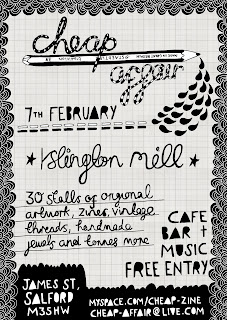 cheap
affair
7TH FEBRUARY
Islington mill
30 stalls of original
artwork, zines, vintage
threads, handmade
jewels and tonnes more
CAFE
BAR +
MUSIC
FREE ENTRY
JAMES ST,
SALFORD
M35HW
MYSPACE.COM/CHEAP-ZINE
CHEAP-AFFAIR@LIVE.COM